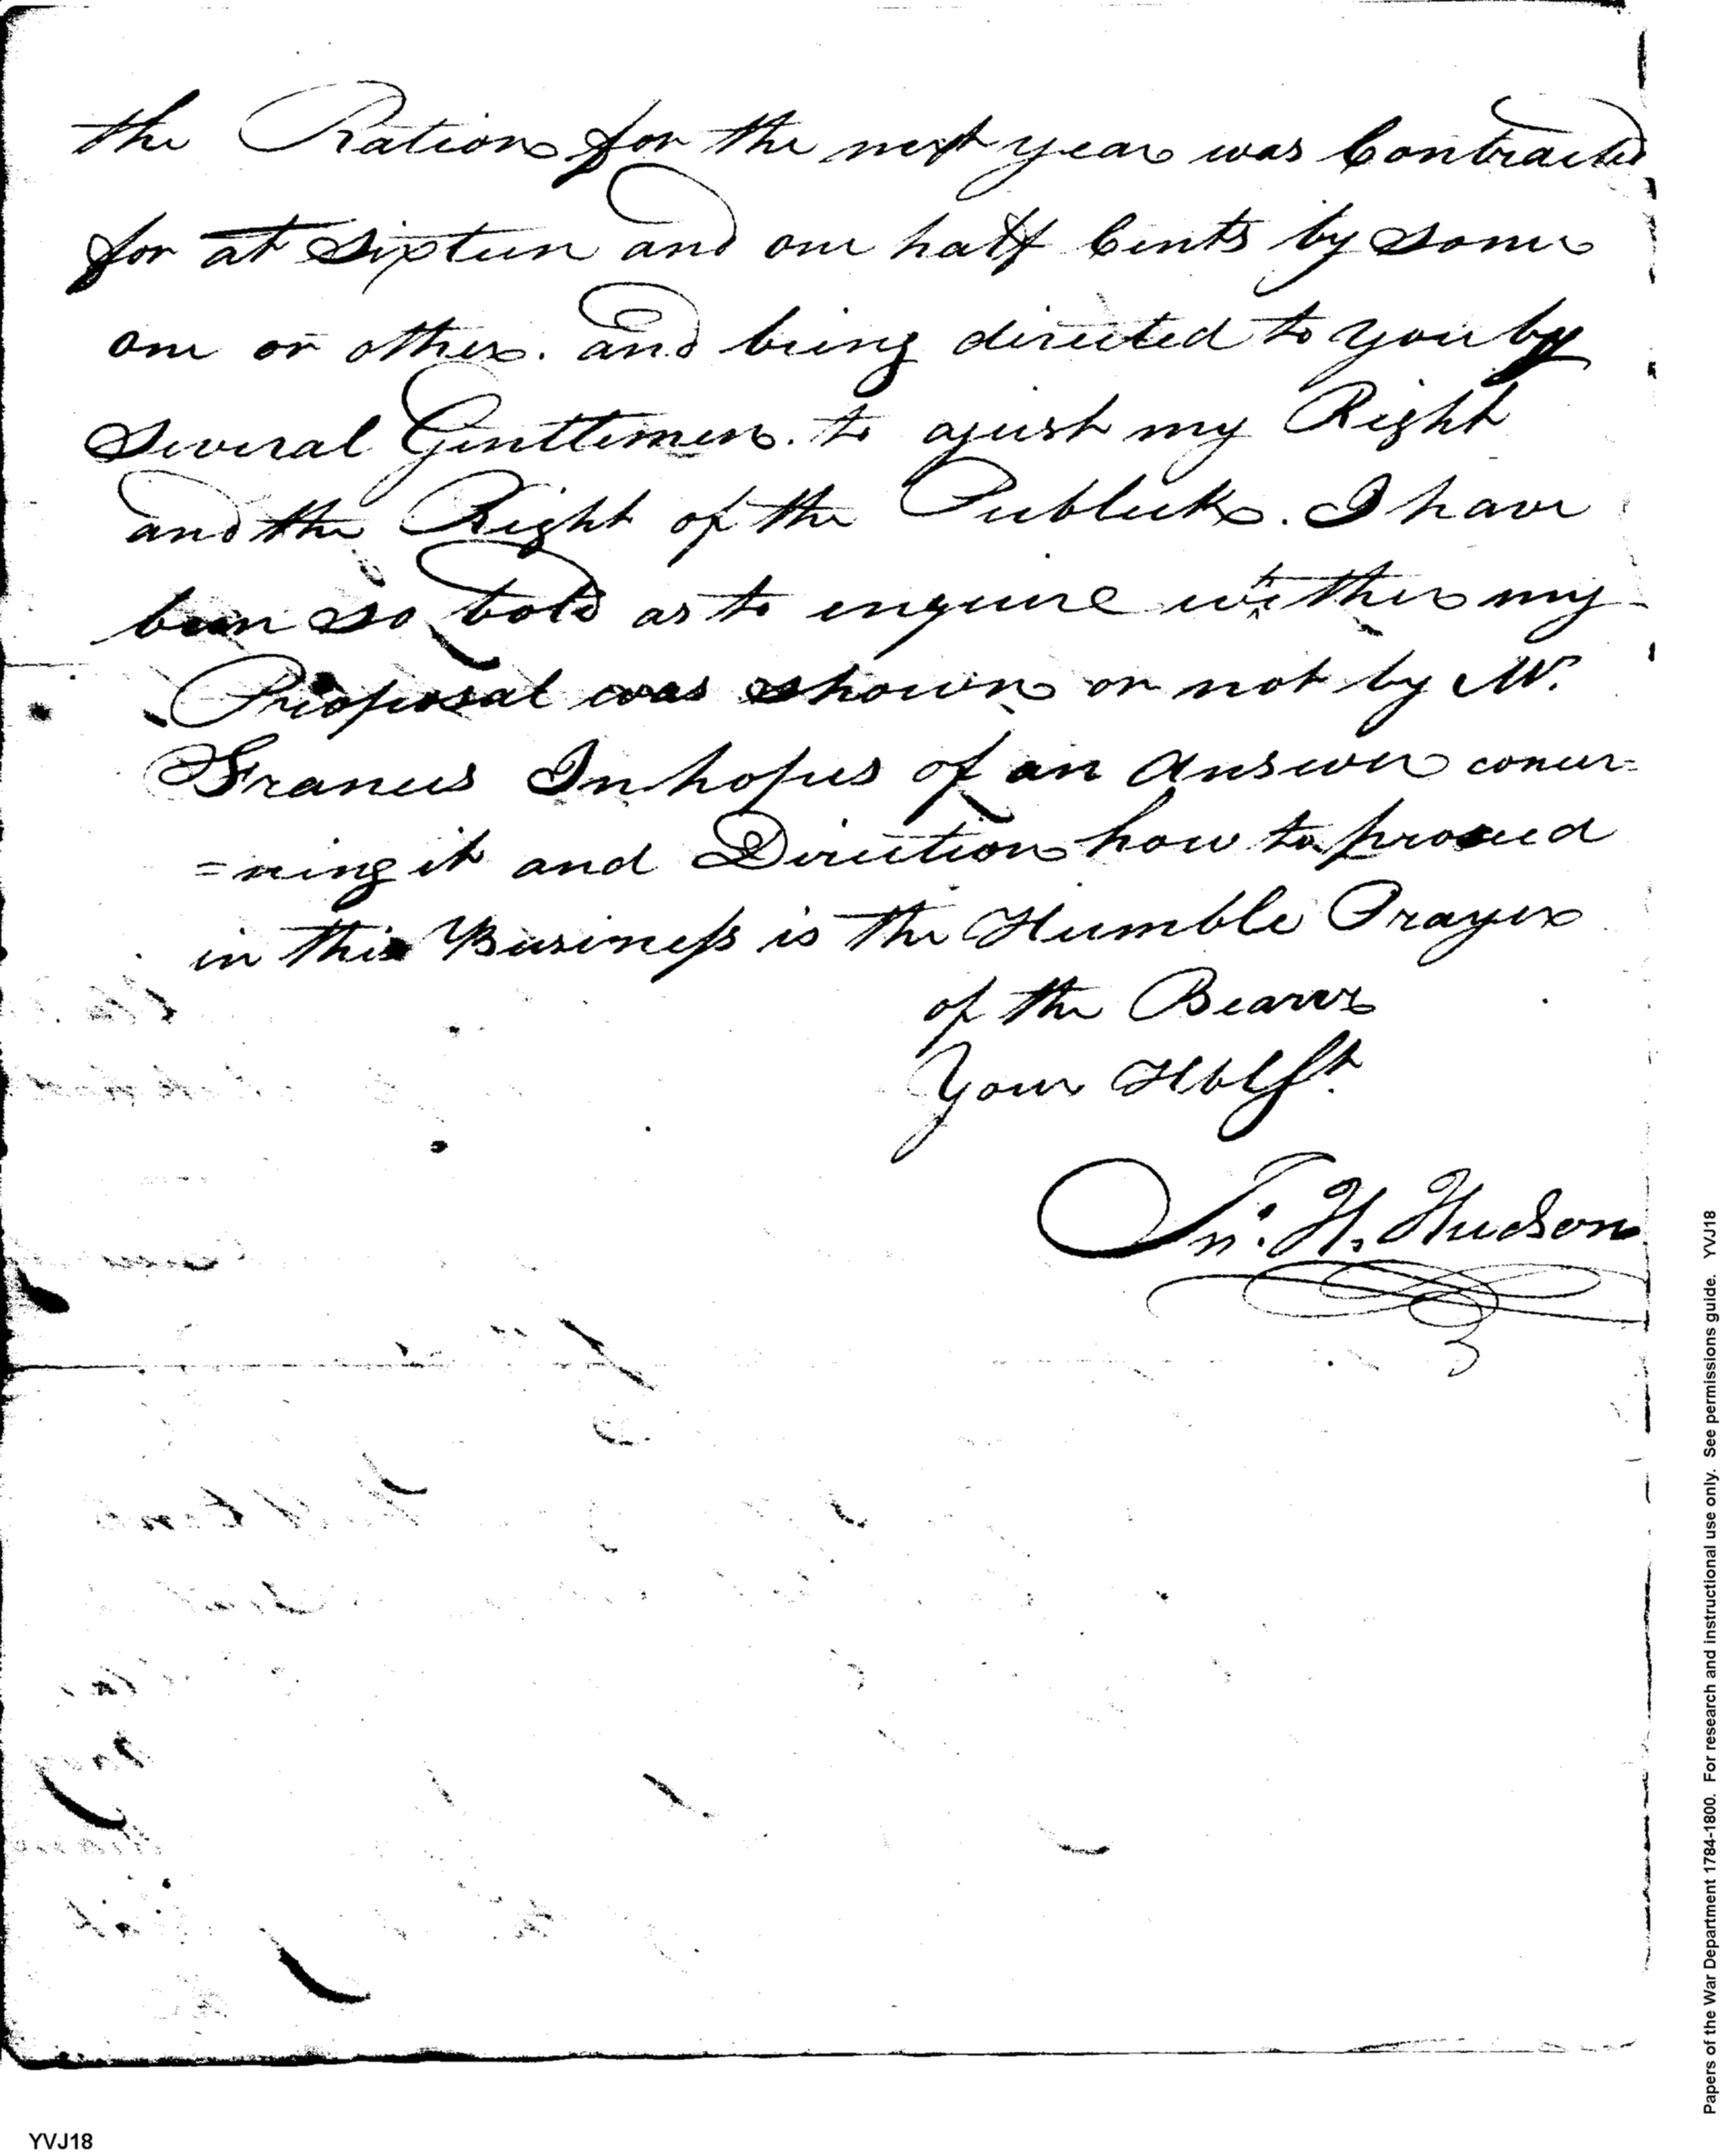 the Rations for the next year was Contracted
for at Sixteen and one half Cents by some
one or other. and being directed to you by
Several Genttlemen. to ajust my Right
and the Right of the Publick. I have
been so bold as to enquire wither my
Proposal was shown or not by Mr.
Francis In hopes of an Answer concer=
=ning it and Direction how to proceed
in this Business is the Humble Prayer
of the Bearer
Your Hble St.
Jn.o H. Hudson
Papers of the War Department 1784-1800. For research and instructional use only. See permissions guide. YVJ18
YVJ18